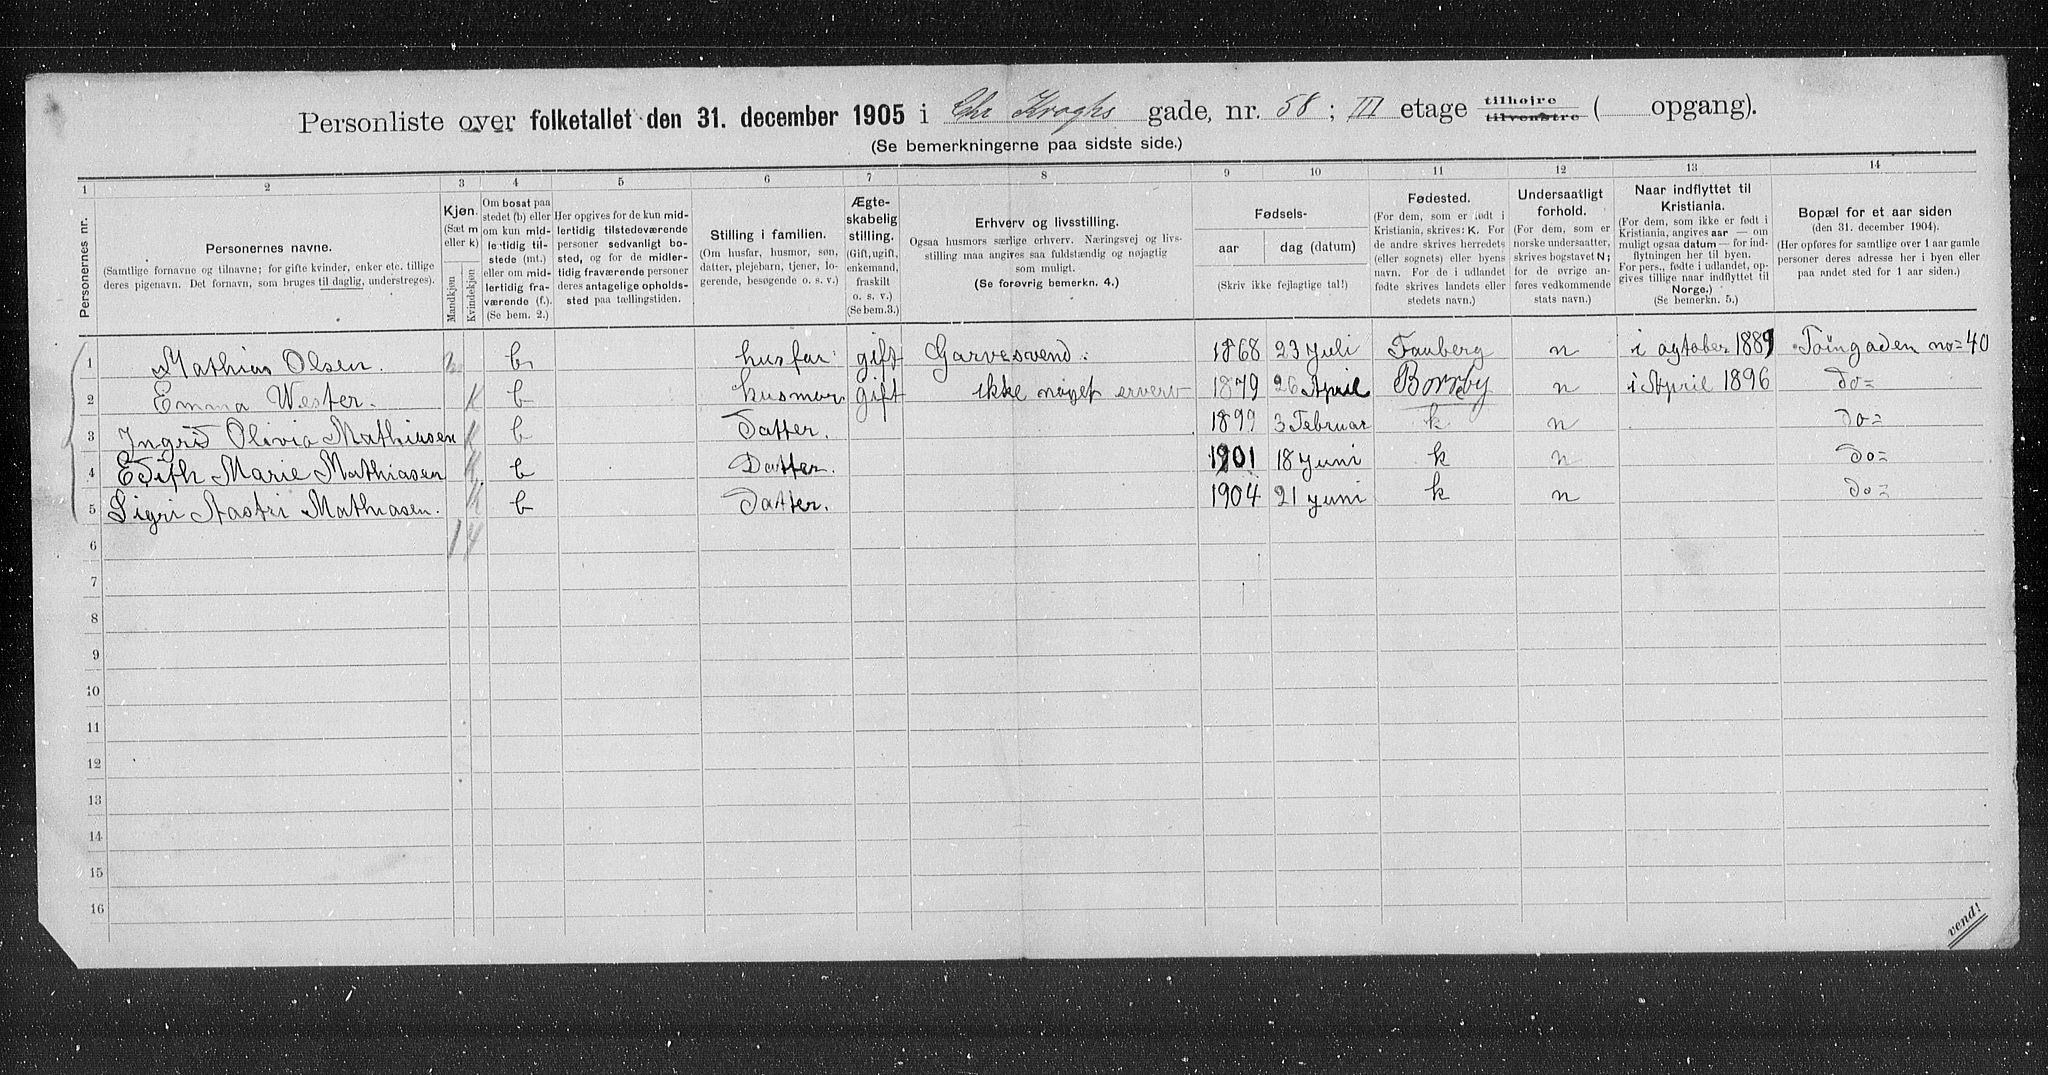 Personliste over folketallet den 31. december 1905 i Chr Kroghs gade, nr. 58; III etage tilhøjre tilvenstre ( opgang).
(Se bemerkningerne paa sidste side.)
1 2 3 4 5 6 7 8 9 10 11 12 13 14
Personernes nr.
Personernes navne.
(Samtlige fornavne og tilnavne; for gifte kvinder, enker etc. tillige
deres pigenavn. Det fornavn, som bruges til daglig, understreges).
Kjøn.
(Sæt m
eller k)
Mandkjøn
Kvindekjøn
Om bosat paa
stedet (b) eller
om kun mid-
lertidig til-
stede (mt.)
eller om mid-
lertidig fra-
værende (f.)
(Se bem. 2.)
Her opgives for de kun mid-
lertidig tilstedeværende
personer sedvanligt bo-
sted, og for de midler-
tidig fraværende personer
deres antagelige opholds-
sted paa tællingstiden.
Stilling i familien.
(Om husfar, husmor, søn,
datter, plejebarn, tjener, lo-
gerende, besøgende o. s. v.)
Ægte-
skabelig
stilling.
(Gift, ugift,
enkemand,
fraskilt
o. s. v.)
(Se bem.3.)
Erhverv og livsstilling.
Ogsaa husmors særlige erhverv. Næringsvej og livs-
stilling maa angives saa fuldstændig og nøjagtig
som muligt.
(Se forøvrig bemerkn. 4.)
Fødsels-
aar dag (datum)
(Skriv ikke fejlagtige tal!)
Fødested.
(For dem, som er født i
Kristiania, skrives: K. For
de andre skrives herredets
(eller sognets) eller byens
navn. For de i udlandet
fødte skrives landets eller
stedets navn.)
Undersaatligt
forhold.
(For dem, som er
norske undersaatter,
skrives bogstavet N;
for de øvrige an-
føres vedkommende
stats navn.)
Naar indflyttet til
Kristiania.
(For dem, som ikke er født i
Kristiania, angives aar — om
muligt ogsaa datum — for ind-
flytningen her til byen.
For pers., fødte i udlandet, op-
gives tillige naar indflyttet til
Norge.)
(Se bemerkn. 5.)
Bopæl for et aar siden
(den 31. december 1904).
(Her opføres for samtlige over 1 aar gamle
personer deres adresse her i byen eller
paa andet sted for 1 aar siden.)
1 Mathias Olsen. m b husfar: gift Garvesvend: 1868 23 Juli Fauberg n i ogtober 1889 Töingaden no= 40
2 Emma Wester. K b husmor gift ikke noget erverv 1879 26 April Borrby n i April 1896 do=
3 Ingrid Olivia Mathiasen K b Datter. 1899 3 Februar k n do=
4 Edith Marie Mathiasen K b Datter. 1901 18 Juni k n do=
5 Sigri Aastri Mathiasen. K b Datter. 1904 21 Juni k n do=
6 1 4
7
8
9
10
11
12
13
14
15
16
vend!